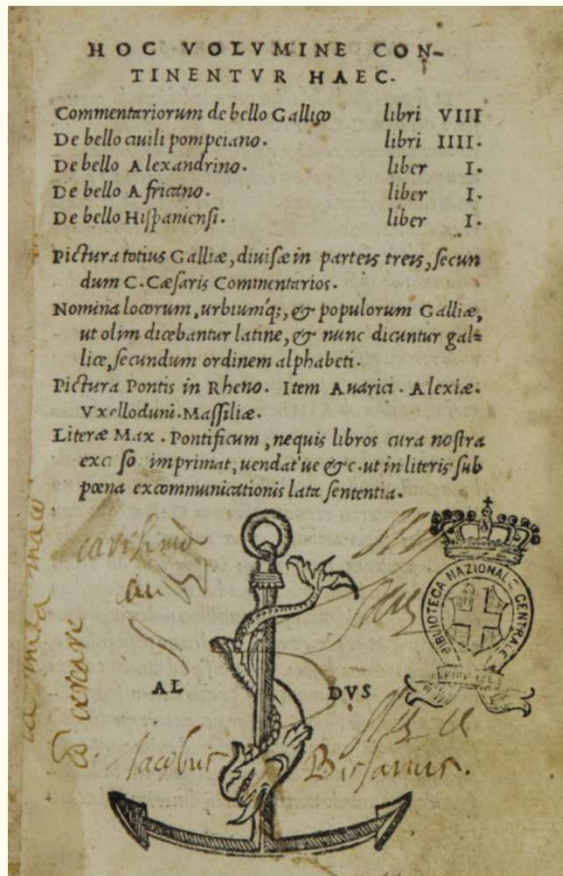 HOC VOLVMINE CON-
TINENTVR HAEC.
Commentariorum de bello Gallico libri VIII
De bello ciuili pompeiano. libri IIII.
De bello Alexandrino. liber I.
De bello Africano. liber I.
De bello Hiſpanienſi. liber I.
Pictura totius Galliæ, diuiſæ in parteis treis, ſecun
dum C. Cæſaris Commentarios.
Nomina locorum, urbiumq́;, & populorum Galliæ,
ut olim dicebantur latine, & nunc dicuntur gal-
lice, ſecundum ordinem alphabeti.
Pictura Pontis in Rheno. Item Auarici. Alexiæ.
Vxelloduni. Maſſiliæ.
Literæ Max. Pontificum, nequis libros cura noſtra
exc ſo imprimat, uendat'ue &c. ut in literis ſub
pœna excommunicationis latæ ſententiæ.
BIBLIOTECA NAZIONALE CENTRALE
AL DVS
Iacobus